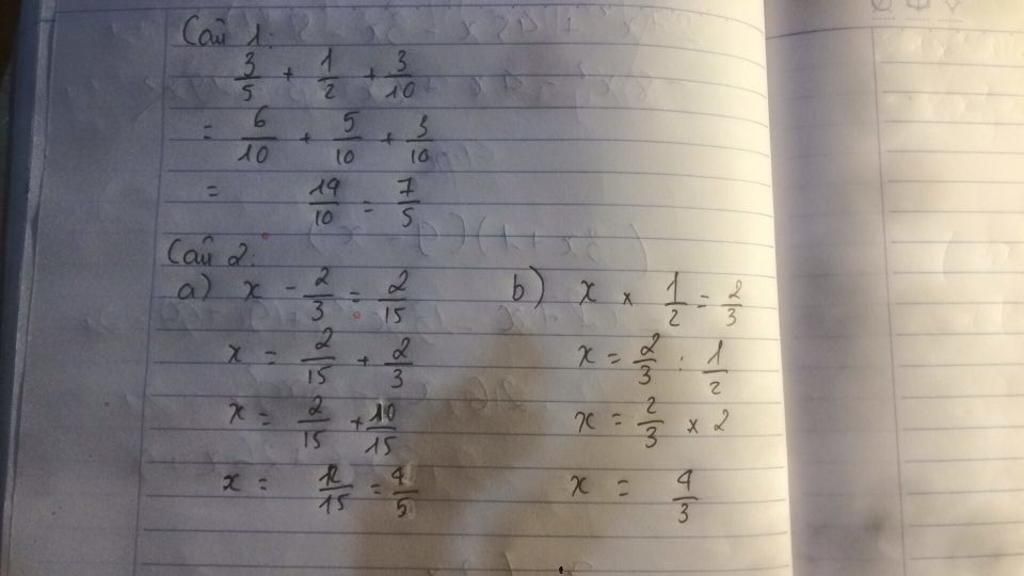 Câu 1:
3/5 + 1/2 + 3/10
= 6/10 + 5/10 + 3/10
= 14/10 = 7/5
Câu 2:
a) x - 2/3 = 2/15
x = 2/15 + 2/3
x = 2/15 + 10/15
x = 12/15 = 4/5
b) x × 1/2 = 2/3
x = 2/3 : 1/2
x = 2/3 × 2
x = 4/3